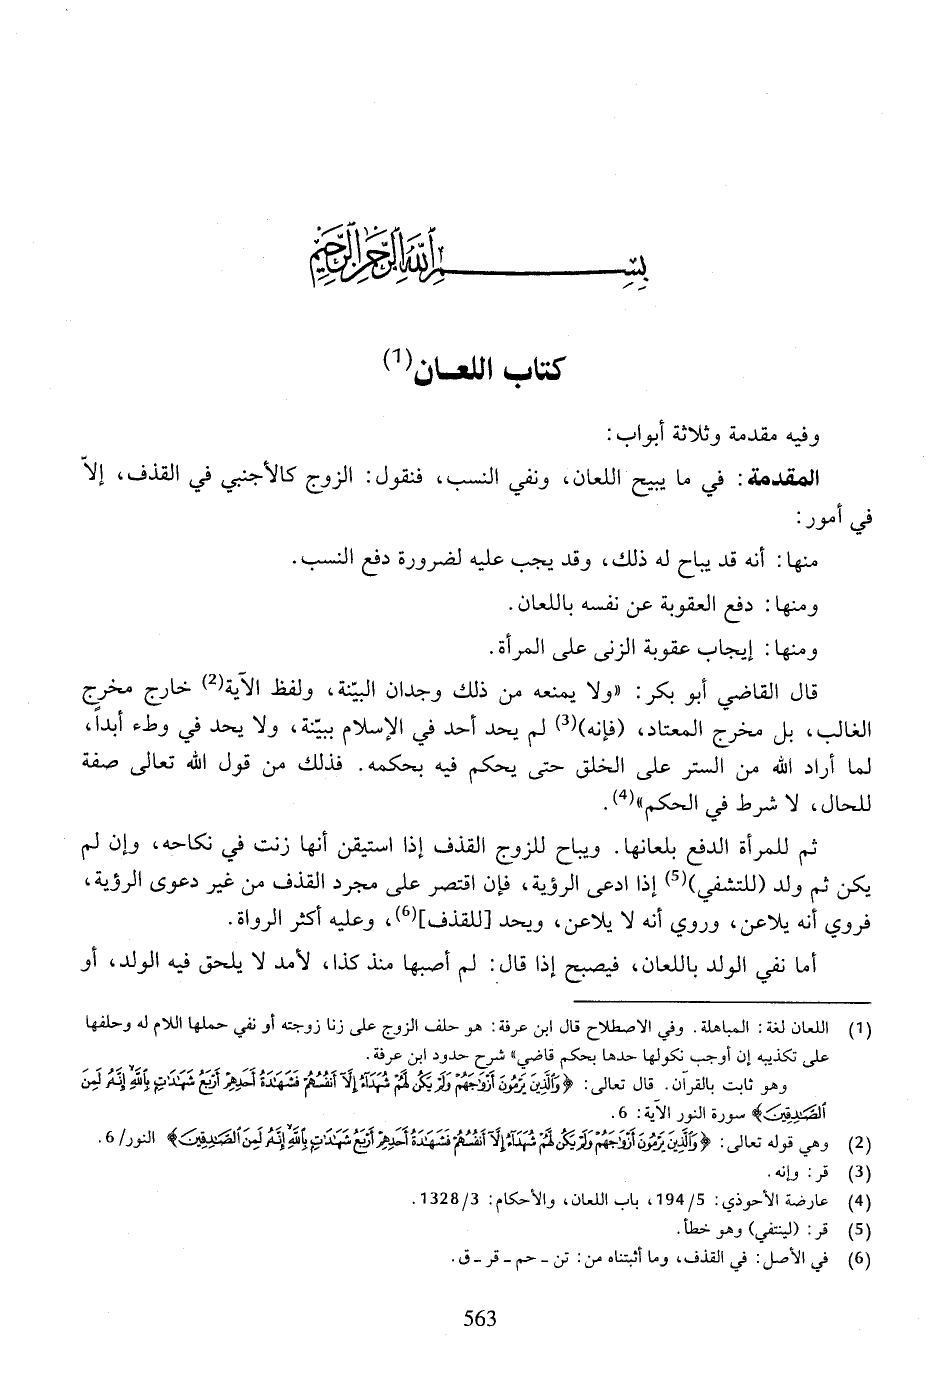 بسم الله الرحمن الرحيم
كتاب اللعـان(1)
وفيه مقدمة وثلاثة أبواب:
المقدمة: في ما يبيح اللعان، ونفي النسب، فنقول: الزوج كالأجنبي في القذف، إلاّ
في أمور:
منها: أنه قد يباح له ذلك، وقد يجب عليه لضرورة دفع النسب.
ومنها: دفع العقوبة عن نفسه باللعان.
ومنها: إيجاب عقوبة الزنى على المرأة.
قال القاضي أبو بكر: «ولا يمنعه من ذلك وجدان البيّنة، ولفظ الآية(2) خارج مخرج
الغالب، بل مخرج المعتاد، (فإنه)(3) لم يحد أحد في الإسلام ببيّنة، ولا يحد في وطء أبداً،
لما أراد الله من الستر على الخلق حتى يحكم فيه بحكمه. فذلك من قول الله تعالى صفة
للحال، لا شرط في الحكم»(4).
ثم للمرأة الدفع بلعانها. ويباح للزوج القذف إذا استيقن أنها زنت في نكاحه، وإن لم
يكن ثم ولد (للتشفي)(5) إذا ادعى الرؤية، فإن اقتصر على مجرد القذف من غير دعوى الرؤية،
فروي أنه يلاعن، وروي أنه لا يلاعن، ويحد [للقذف](6)، وعليه أكثر الرواة.
أما نفي الولد باللعان، فيصبح إذا قال: لم أصبها منذ كذا، لأمد لا يلحق فيه الولد، أو
(1) اللعان لغة: المباهلة. وفي الاصطلاح قال ابن عرفة: هو حلف الزوج على زنا زوجته أو نفي حملها اللام له وحلفها
على تكذيبه إن أوجب نكولها حدها بحكم قاضي» شرح حدود ابن عرفة.
وهو ثابت بالقرآن. قال تعالى: ﴿وَٱلَّذِينَ يَرْمُونَ أَزْوَٰجَهُمْ وَلَمْ يَكُن لَّهُمْ شُهَدَآءُ إِلَّآ أَنفُسُهُمْ فَشَهَٰدَةُ أَحَدِهِمْ أَرْبَعُ شَهَٰدَٰتٍ بِٱللَّهِ إِنَّهُۥ لَمِنَ
ٱلصَّٰدِقِينَ﴾ سورة النور الآية: 6.
(2) وهي قوله تعالى: ﴿وَٱلَّذِينَ يَرْمُونَ أَزْوَٰجَهُمْ وَلَمْ يَكُن لَّهُمْ شُهَدَآءُ إِلَّآ أَنفُسُهُمْ فَشَهَٰدَةُ أَحَدِهِمْ أَرْبَعُ شَهَٰدَٰتٍ بِٱللَّهِ إِنَّهُۥ لَمِنَ ٱلصَّٰدِقِينَ﴾ النور/6.
(3) قر: وإنه.
(4) عارضة الأحوذي: 194/5، باب اللعان، والأحكام: 1328/3.
(5) قر: (لينتفي) وهو خطأ.
(6) في الأصل: في القذف، وما أثبتناه من: تن ـ حم ـ قر ـ ق.
563